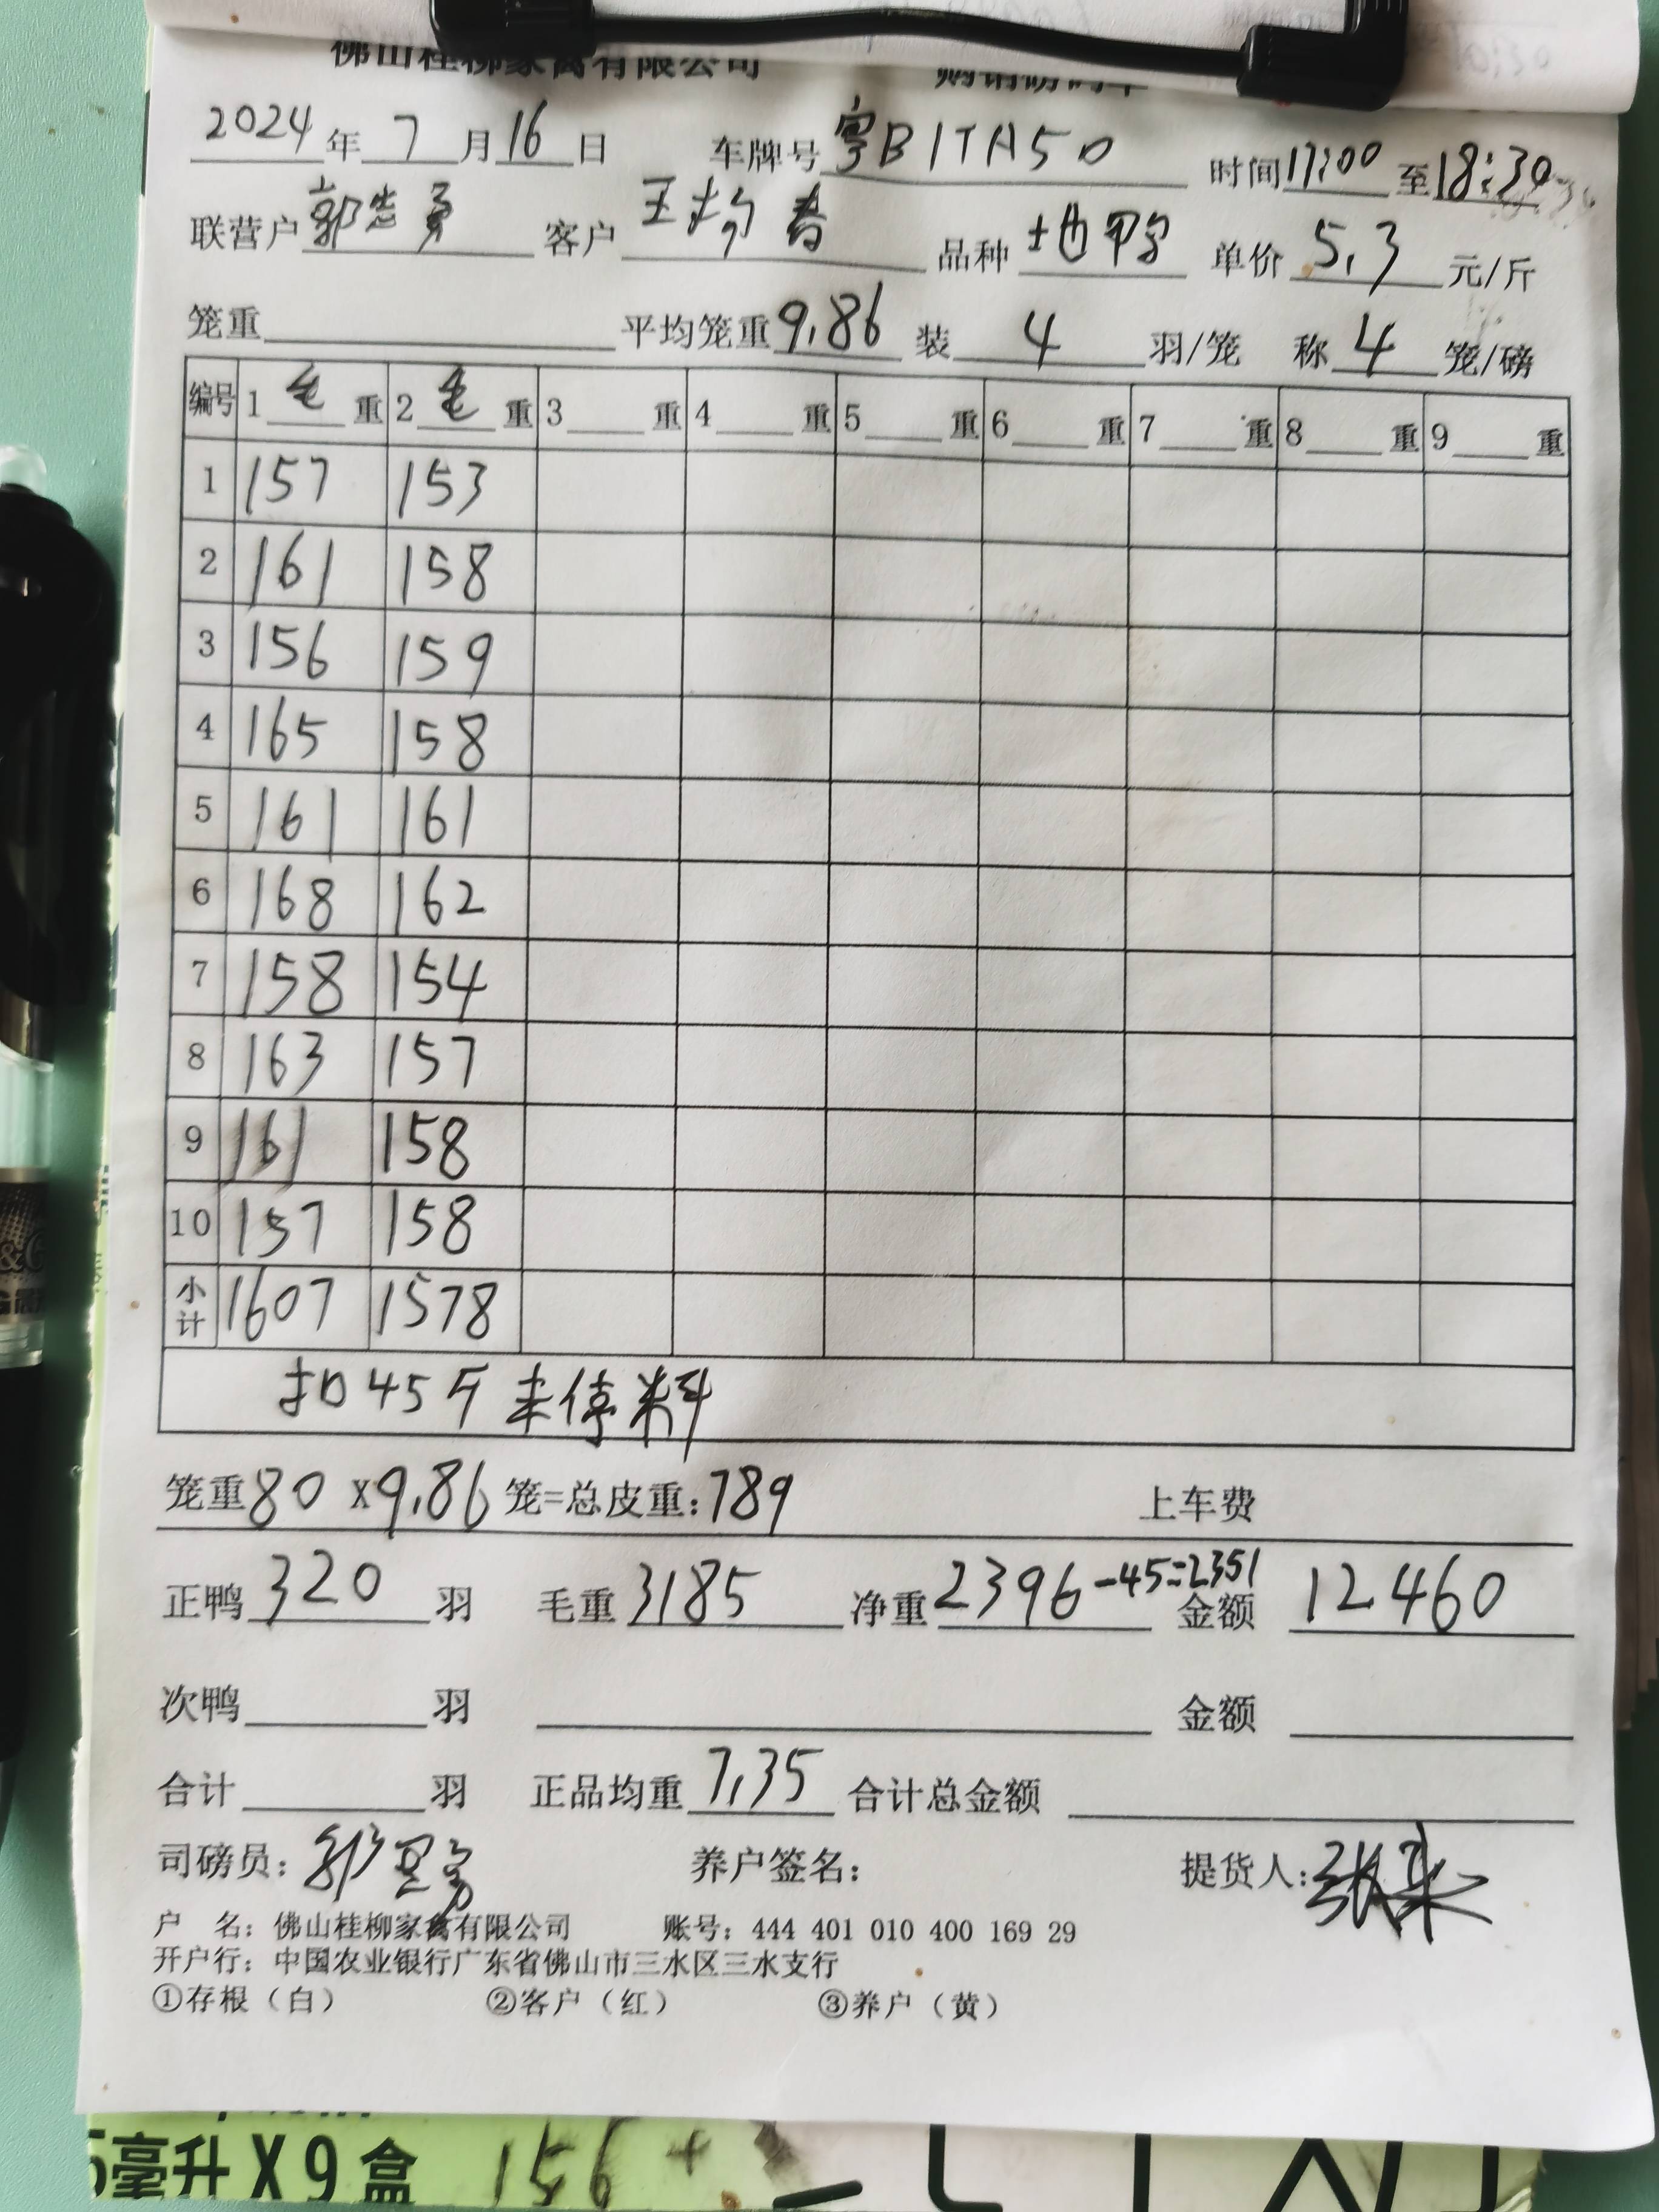 佛山桂柳家禽有限公司 购销磅码单
2024年7月16日 车牌号粤B1TA50 时间17:00至18:30
联营户郭志勇 客户王扬春 品种土也鸭 单价5.3元/斤
笼重 平均笼重9.86装4羽/笼 称4笼/磅
编号 1毛重 2毛重 3重 4重 5重 6重 7重 8重 9重
1 157 153
2 161 158
3 156 159
4 165 158
5 161 161
6 168 162
7 158 154
8 163 157
9 161 158
10 157 158
小计 1607 1578
扣45斤未停料
笼重80X9.86笼=总皮重:789 上车费
正鸭320羽 毛重3185 净重2396-45=2351 金额12460
次鸭羽 金额
合计羽 正品均重7.35 合计总金额
司磅员: 养户签名: 提货人:
户 名:佛山桂柳家禽有限公司 账号:444 401 010 400 169 29
开户行:中国农业银行广东省佛山市三水区三水支行
①存根(白) ②客户(红) ③养户(黄)
5毫升X9盒 156+